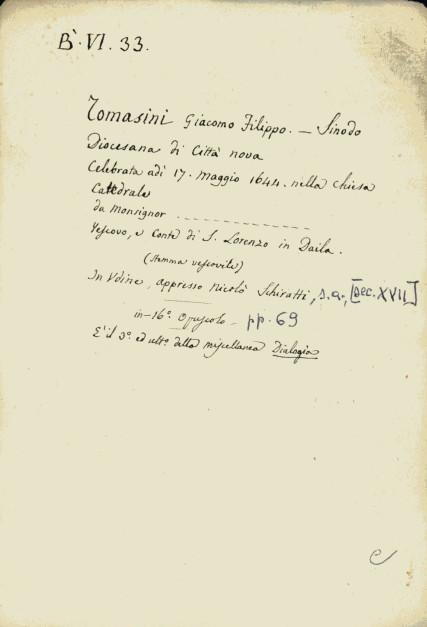 B. VI. 33.
Tomasini Giacomo Filippo. — Sinodo
Diocesana di Città nova
Celebrata adì 17. Maggio 1644. nella Chiesa
Cattedrale
da Monsignor
Vescovo, e Conte di S. Lorenzo in Daila.
(stemma vescovile)
In Udine, appresso Nicolò Schiratti, s.a., [sec. XVII]
in-16º. Opuscolo - pp. 69
È il 3º. ed ultº. della miscellanea Dialogia